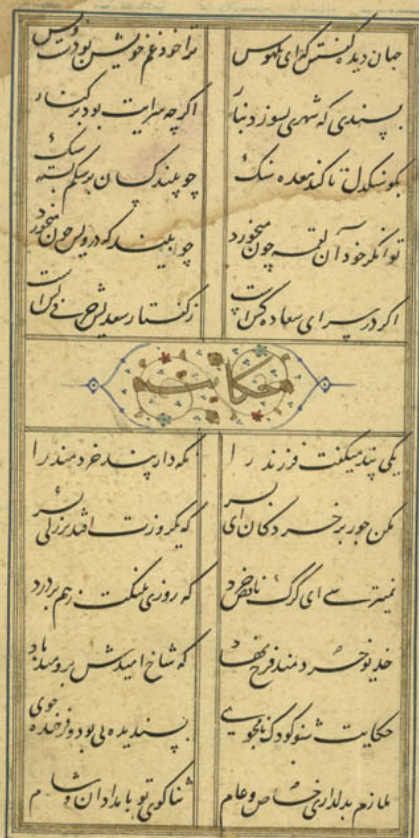 جهان دیده گفتش که ای بلهوس ترا خود غم خویشتن بود و بس
پسندی که شهری بسوزد بنار اگرچه سرایت بود بر کنار
بکو سنکدل تا کند معده تنک چو بیند کسان بر شکم بسته سنک
توانکر خود آن لقمه چون میخورد چو بیند که درویش خون میخورد
اکر در سرای سعادت کس است ز کفتار سعدیش حرفی بس است
حکایت
یکی پند میکفت فرزند را نکه دار پند خردمند را
مکن جور بر خردکان ای پسر که یکروزت افتد بزرکی بسر
نمیترسی ای کرک ناقص خرد که روزی پلنکت ز هم بردرد
خدیو خردمند فرخ نهاد که شاخ امیدش برومند باد
حکایت شنو کودک نامجوی پسندیده پی بود و فرخنده خوی
ملازم بدلداری خاص و عام ثناکوی تو بامدادان و شام